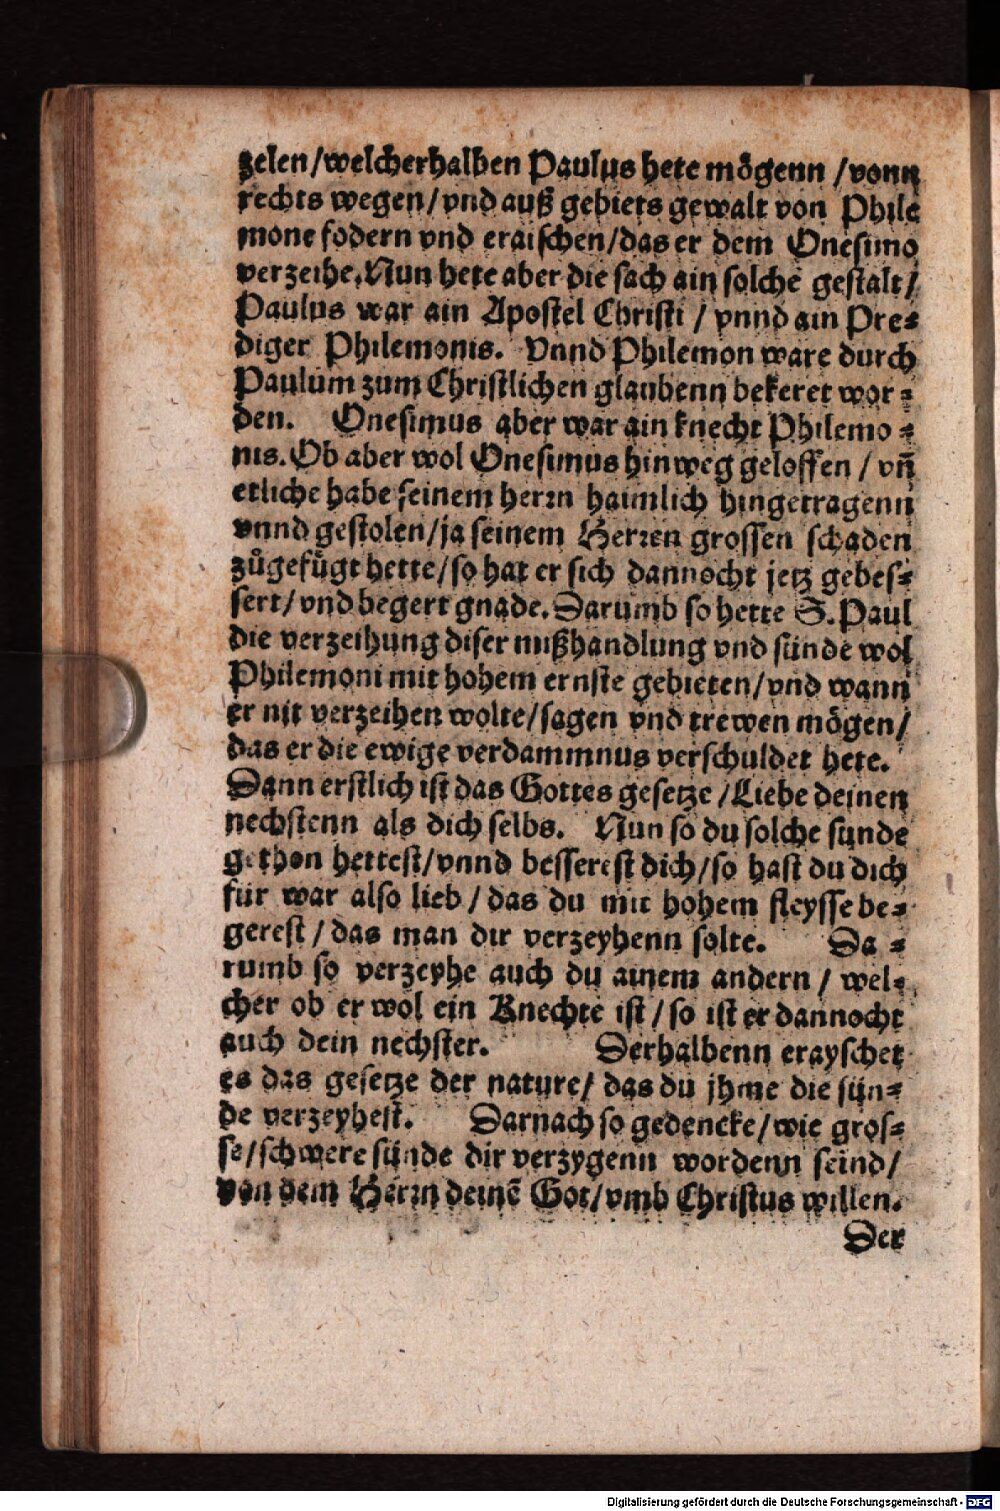 zelen/welcherhalben Paulus hete mögenn /vonn
rechts wegen/vnd auß gebiets gewalt von Phile
mone fodern vnd eraischen/das er dem Onesimo
verzeihe. Nun hete aber die sach ain solche gestalt/
Paulus war ain Apostel Christi / vnnd ain Pre-
diger Philemonis. Vnnd Philemon ware durch
Paulum zum Christlichen glaubenn bekeret wor-
den. Onesimus aber war ain knecht Philemo-
nis. Ob aber wol Onesimus hinweg geloffen / vñ
etliche habe seinem herrn haimlich hingetragenn
vnnd gestolen/ja seinem Herren grossen schaden
zůgefügt hette/so hat er sich dannocht jetz gebes-
sert/vnd begert gnade. Darumb so hette S. Paul
die verzeihung diser mißhandlung vnd sünde wol
Philemoni mit hohem ernste gebieten/vnd wann
er nit verzeihen wolte/sagen vnd trewen mögen/
das er die ewige verdammnus verschuldet hete.
Dann erstlich ist das Gottes gesetze /Liebe deinen
nechstenn als dich selbs. Nun so du solche sunde
gethon hettest/vnnd besserest dich/so hast du dich
für war also lieb / das du mit hohem fleysse be-
gerest / das man dir verzeyhenn solte. Da-
rumb so verzeyhe auch du ainem andern / wel-
cher ob er wol ein Knechte ist / so ist er dannocht
auch dein nechster. Derhalbenn erayschet
es das gesetze der nature/ das du jhme die sün-
de verzeyhest. Darnach so gedencke/wie gros-
se/schwere sünde dir verzygenn wordenn seind/
von dem Herrn deinē Got/vmb Christus willen.
Der
Digitalisierung gefördert durch die Deutsche Forschungsgemeinschaft - DFG